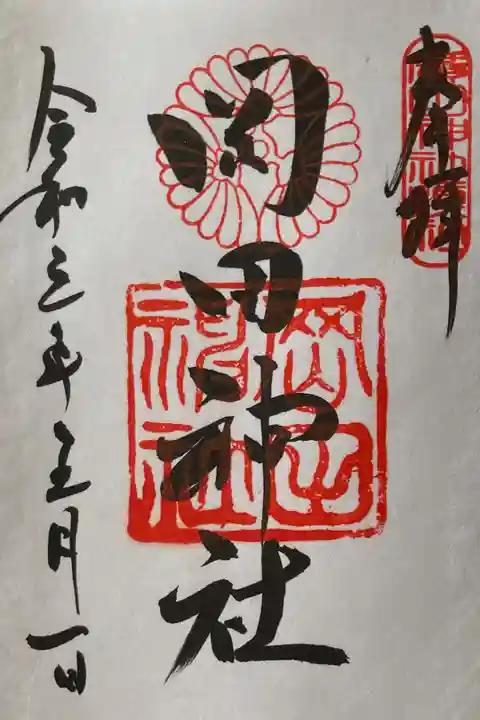 奉拝
岡田神社
岡田
神社
令和三年五月一日